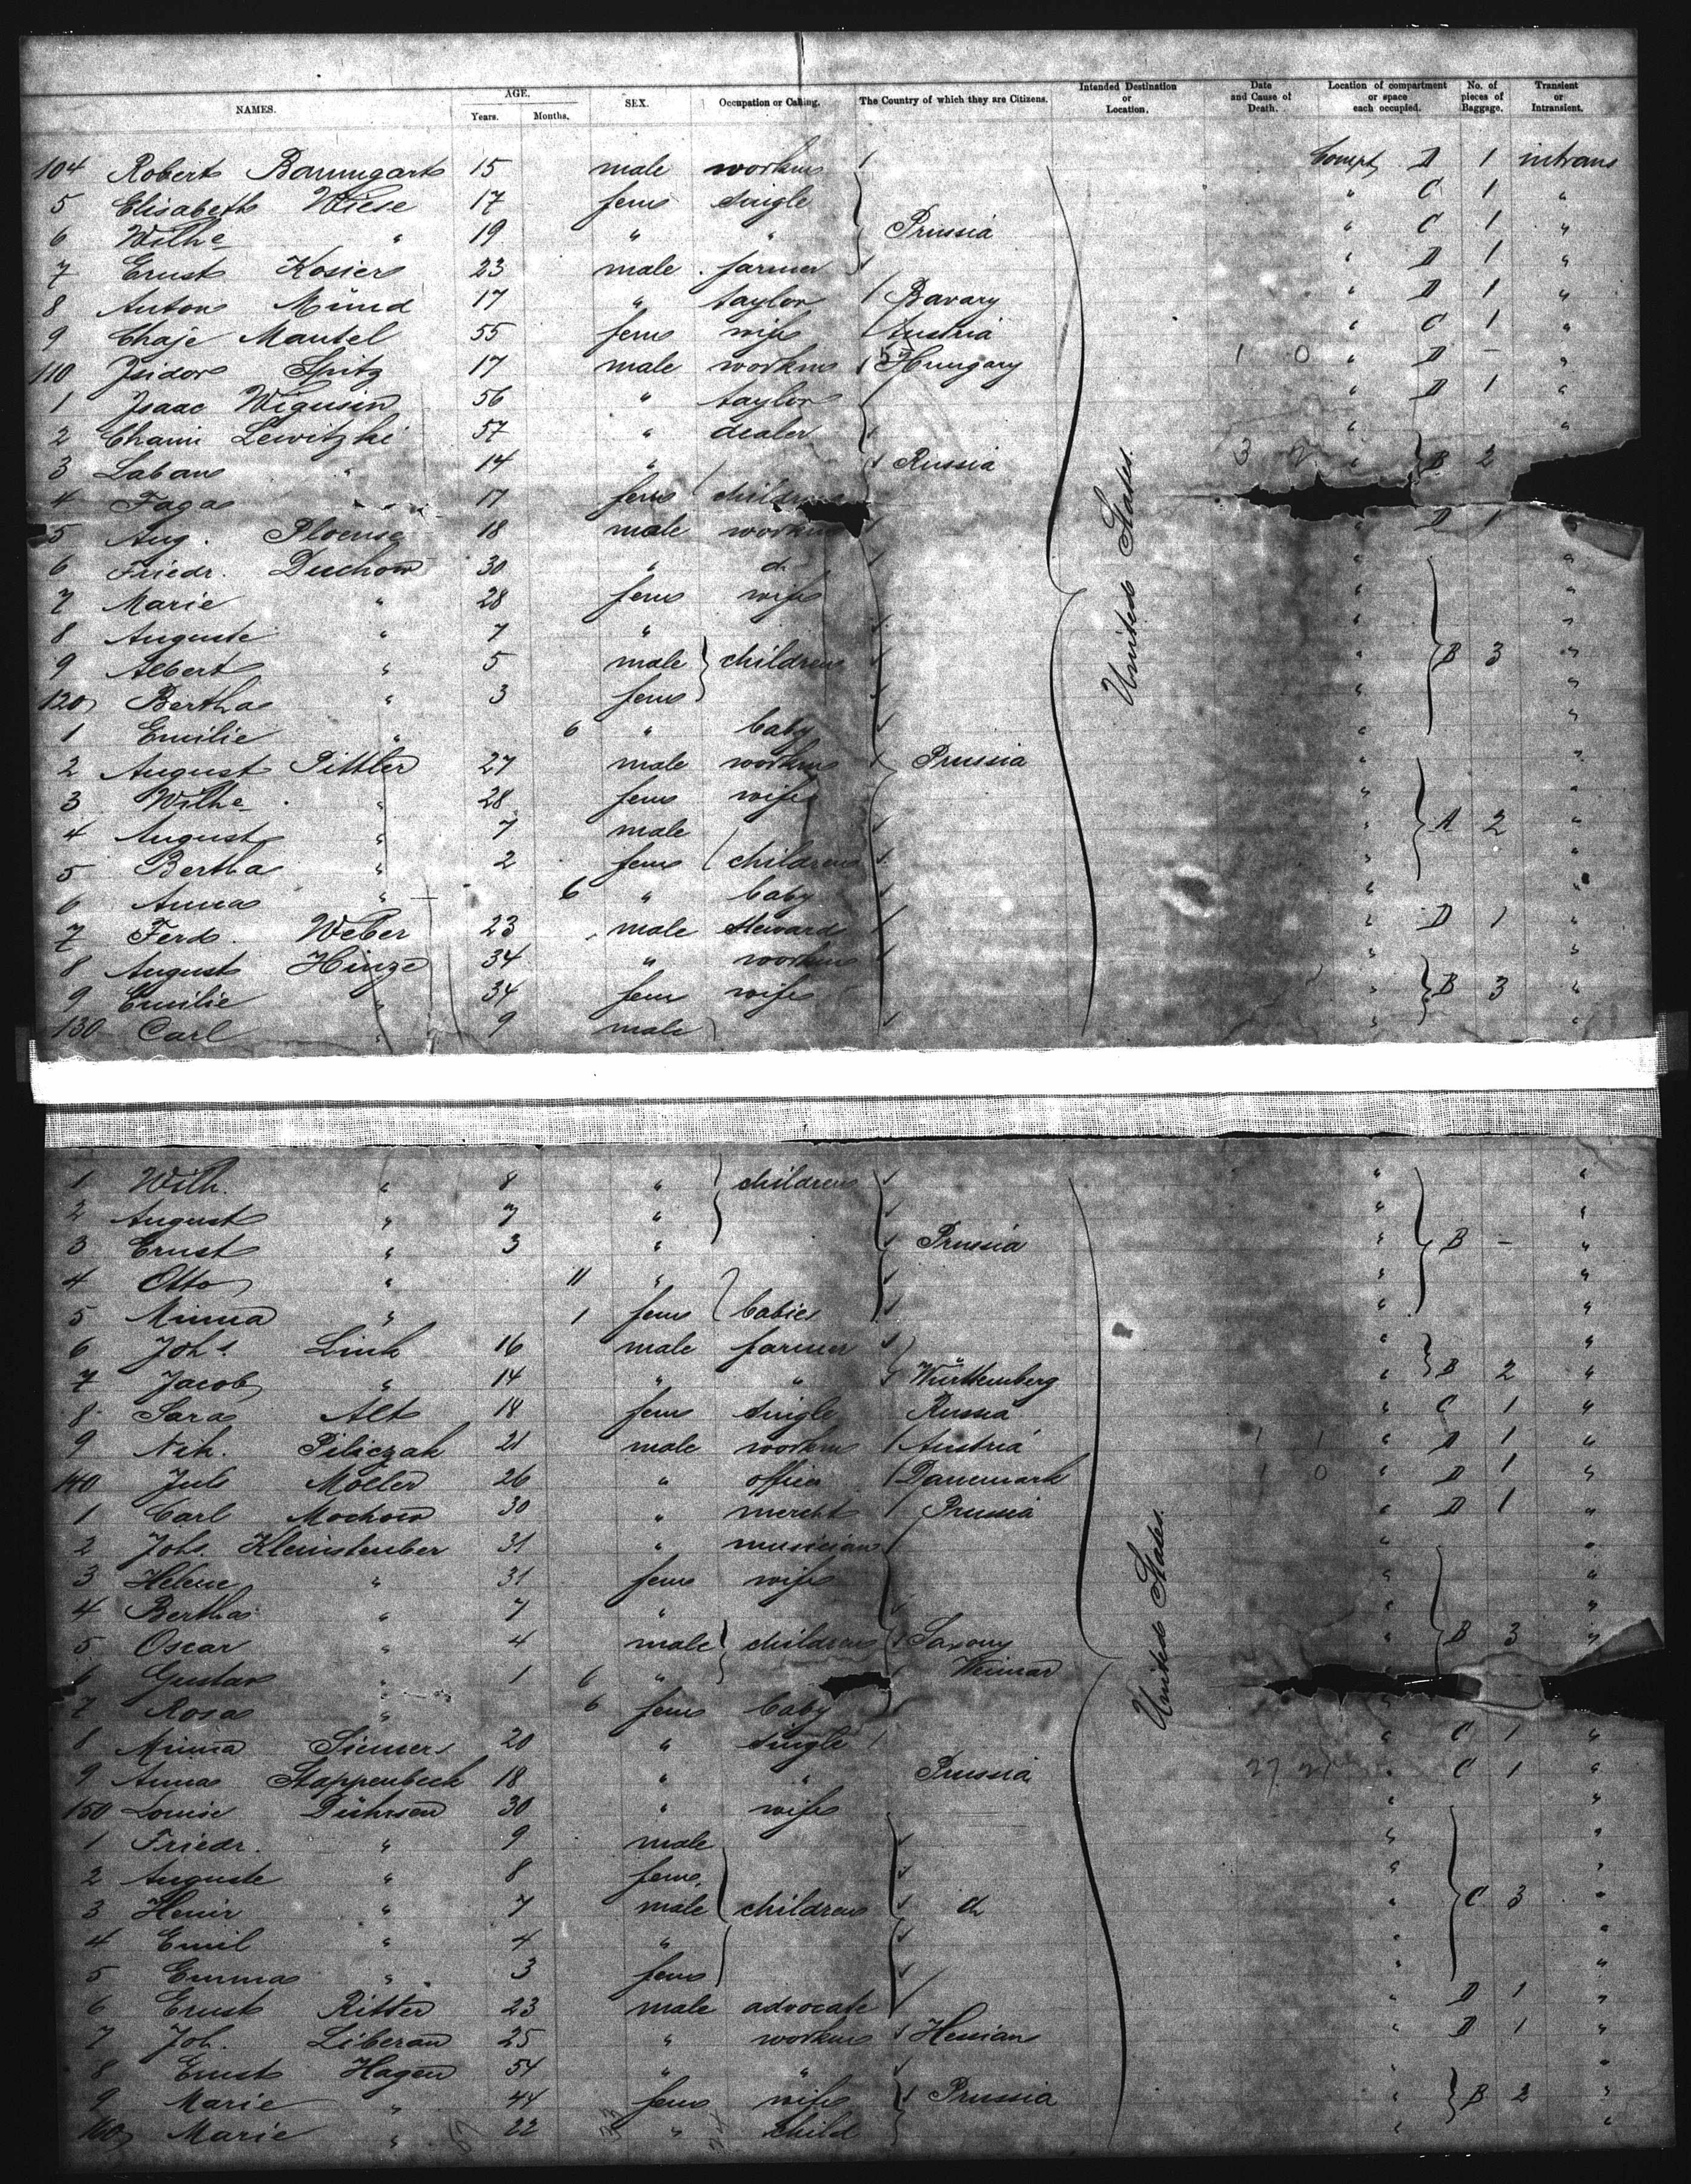 NAMES. AGE. Years. Months. SEX. Occupation or Calling. The Country of which they are Citizens. Intended Destination or Location. Date and Cause of Death. Location of compartment or space each occupied. No. of pieces of Baggage. Transient or Intransient.
104 Robert Baumgart 15 male workm Compt D 1 intrans
5 Elisabeth Wiese 17 fem single " C 1 "
6 Wilhe " 19 " " Prussia " C 1 "
7 Ernst Kosier 23 male farmer " D 1 "
8 Anton Münd 17 " taylor Bavary " D 1 "
9 Chaje Mantel 55 fem wife Austria " C 1 "
110 Isidor Spitz 17 male workm Hungary 1 0 " D - "
1 Isaac Wigusin 56 " taylor " D 1 "
2 Chaim Lewitzki 57 " dealer " "
3 Laban " 14 " Russia 3 2 " B 2
4 Faga 17 fem children
5 Aug. Ploense 18 male workm " D 1 "
6 Friedr. Duchow 30 " do " "
7 Marie " 28 fem wife " "
8 Auguste " 7 " " "
9 Albert " 5 male children " B 3 "
120 Bertha " 3 fem " "
1 Emilie " 6 " baby " "
2 August Pittler 27 male workm Prussia " "
3 Wilhe " 28 fem wife " "
4 August " 7 male " A 2 "
5 Bertha " 2 fem children " "
6 Anna " 6 " baby " "
7 Ferd. Weber 23 male steward " D 1 "
8 August Hinze 34 " workm " "
9 Emilie " 34 fem wife " B 3 "
130 Carl " 9 male " "
United States.
1 Wilh. " 8 " children " "
2 August " 7 " " "
3 Ernst " 3 " Prussia " B - "
4 Otto " 11 " " "
5 Minna " 1 fem babies " "
6 Johs. Link 16 male farmer " "
7 Jacob " 14 " " Württemberg " B 2 "
8 Sara Alt 18 fem single Russia " C 1 "
9 Nik. Piliczak 21 male workm Austria 1 1 " D 1 "
140 Juls Möller 26 " officer Danemark 1 0 " D 1 "
1 Carl Mochow 30 " mercht Prussia " D 1 "
2 Johs. Kleinsteuber 31 " musician " "
3 Helene " 31 fem wife " "
4 Bertha " 7 " " "
5 Oscar " 4 male children Saxony " B 3 "
6 Gustav " 1 6 " Weimar
7 Rosa " 6 fem baby "
8 Minna Siemers 20 " single " C 1 "
9 Anna Stappenbeck 18 " " Prussia 27 21 " C 1 "
150 Louise Dührsen 30 " wife " "
1 Friedr. " 9 male " "
2 Auguste " 8 fem. " "
3 Heinr " 7 male children do " C 3 "
4 Emil " 4 " " "
5 Emma " 3 fem " "
6 Ernst Ritter 23 male advocate " D 1 "
7 Joh. Liberan 25 " workm Hessian " D 1 "
8 Ernst Hagen 54 " " " "
9 Marie " 44 fem wife Prussia " B 2 "
160 Marie " 22 " child " "
United States.